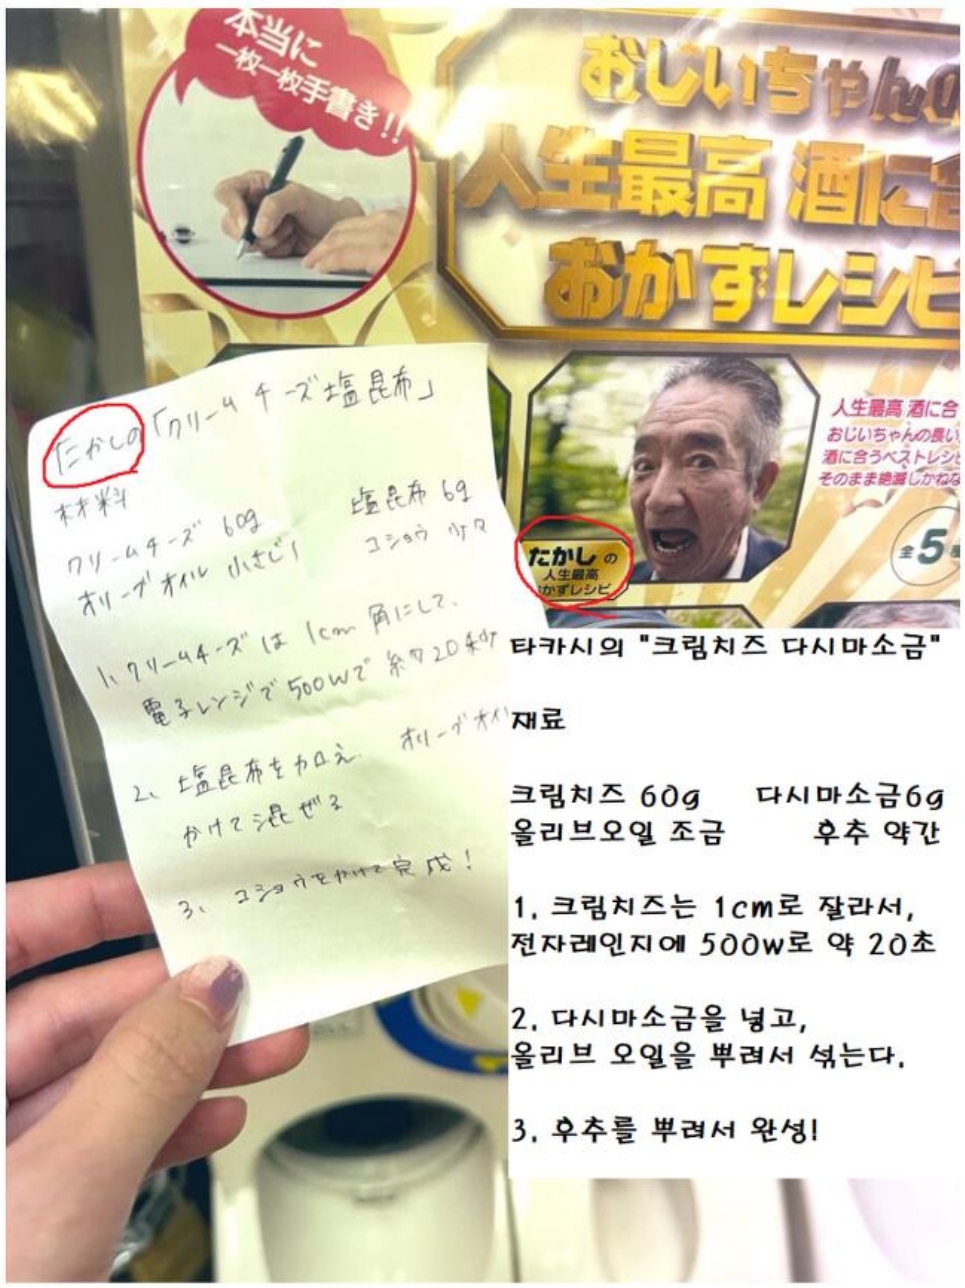 本当に
一枚一枚手書き!!
おじいちゃんの
人生最高 酒に合
おかずレシピ
人生最高 酒に合
おじいちゃんの長い
酒に合うベストレシピ
そのまま絶滅しかねな
全5種
たかしの
人生最高
おかずレシピ
たかしの「クリームチーズ塩昆布」
材料
クリームチーズ 60g 塩昆布 6g
オリーブオイル 小さじ1 コショウ 少々
1、クリームチーズは 1cm 角にして、
電子レンジで 500Wで 約20秒
2、塩昆布を加え オリーブオイル
かけて混ぜる
3、コショウをかけて完成!
타카시의 "크림치즈 다시마소금"
재료
크림치즈 60g 다시마소금6g
올리브오일 조금 후추 약간
1. 크림치즈는 1cm로 잘라서,
전자레인지에 500w로 약 20초
2. 다시마소금을 넣고,
올리브 오일을 뿌려서 섞는다.
3. 후추를 뿌려서 완성!